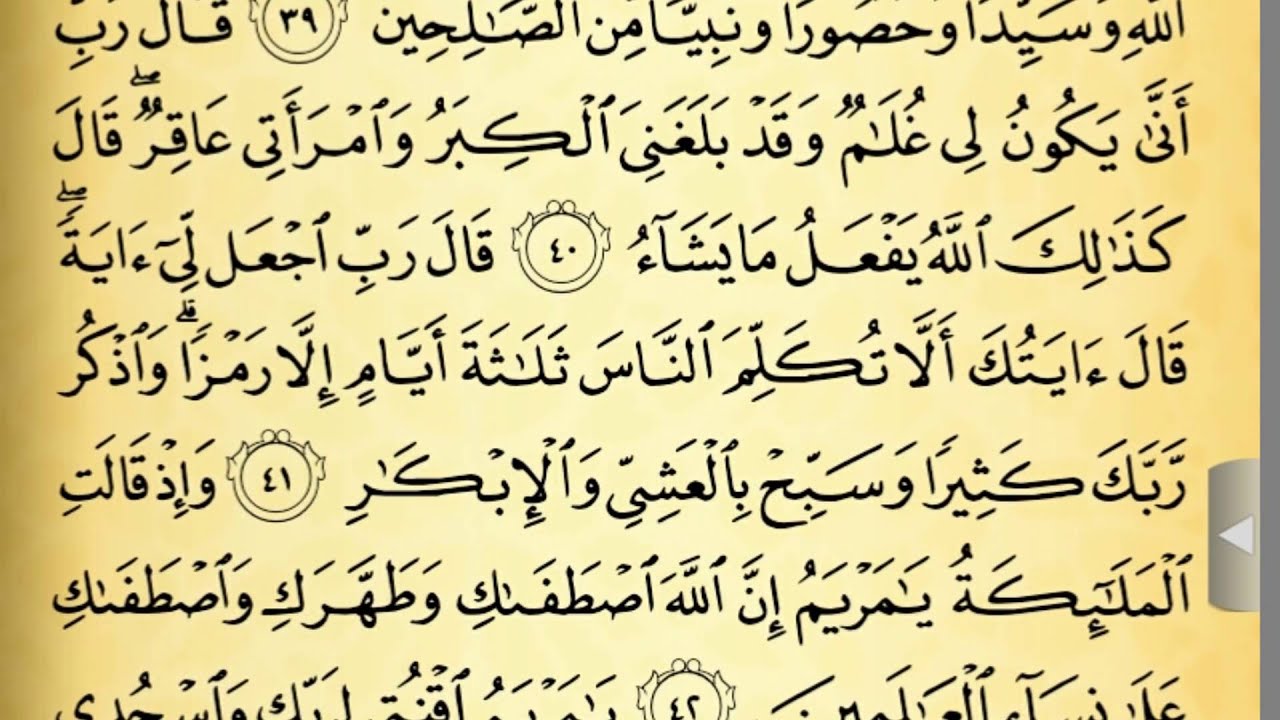 ٱللَّهِ وَسَيِّدًا وَحَصُورًا وَنَبِيًّا مِّنَ ٱلصَّٰلِحِينَ ٣٩ قَالَ رَبِّ
أَنَّىٰ يَكُونُ لِى غُلَٰمٌ وَقَدْ بَلَغَنِىَ ٱلْكِبَرُ وَٱمْرَأَتِى عَاقِرٌ ۖ قَالَ
كَذَٰلِكَ ٱللَّهُ يَفْعَلُ مَا يَشَآءُ ٤٠ قَالَ رَبِّ ٱجْعَل لِّىٓ ءَايَةً ۖ
قَالَ ءَايَتُكَ أَلَّا تُكَلِّمَ ٱلنَّاسَ ثَلَٰثَةَ أَيَّامٍ إِلَّا رَمْزًا ۗ وَٱذْكُر
رَّبَّكَ كَثِيرًا وَسَبِّحْ بِٱلْعَشِىِّ وَٱلْإِبْكَٰرِ ٤١ وَإِذْ قَالَتِ
ٱلْمَلَٰٓئِكَةُ يَٰمَرْيَمُ إِنَّ ٱللَّهَ ٱصْطَفَىٰكِ وَطَهَّرَكِ وَٱصْطَفَىٰكِ
عَلَىٰ نِسَآءِ ٱلْعَٰلَمِينَ ٤٢ يَٰمَرْيَمُ ٱقْنُتِى لِرَبِّكِ وَٱسْجُدِى